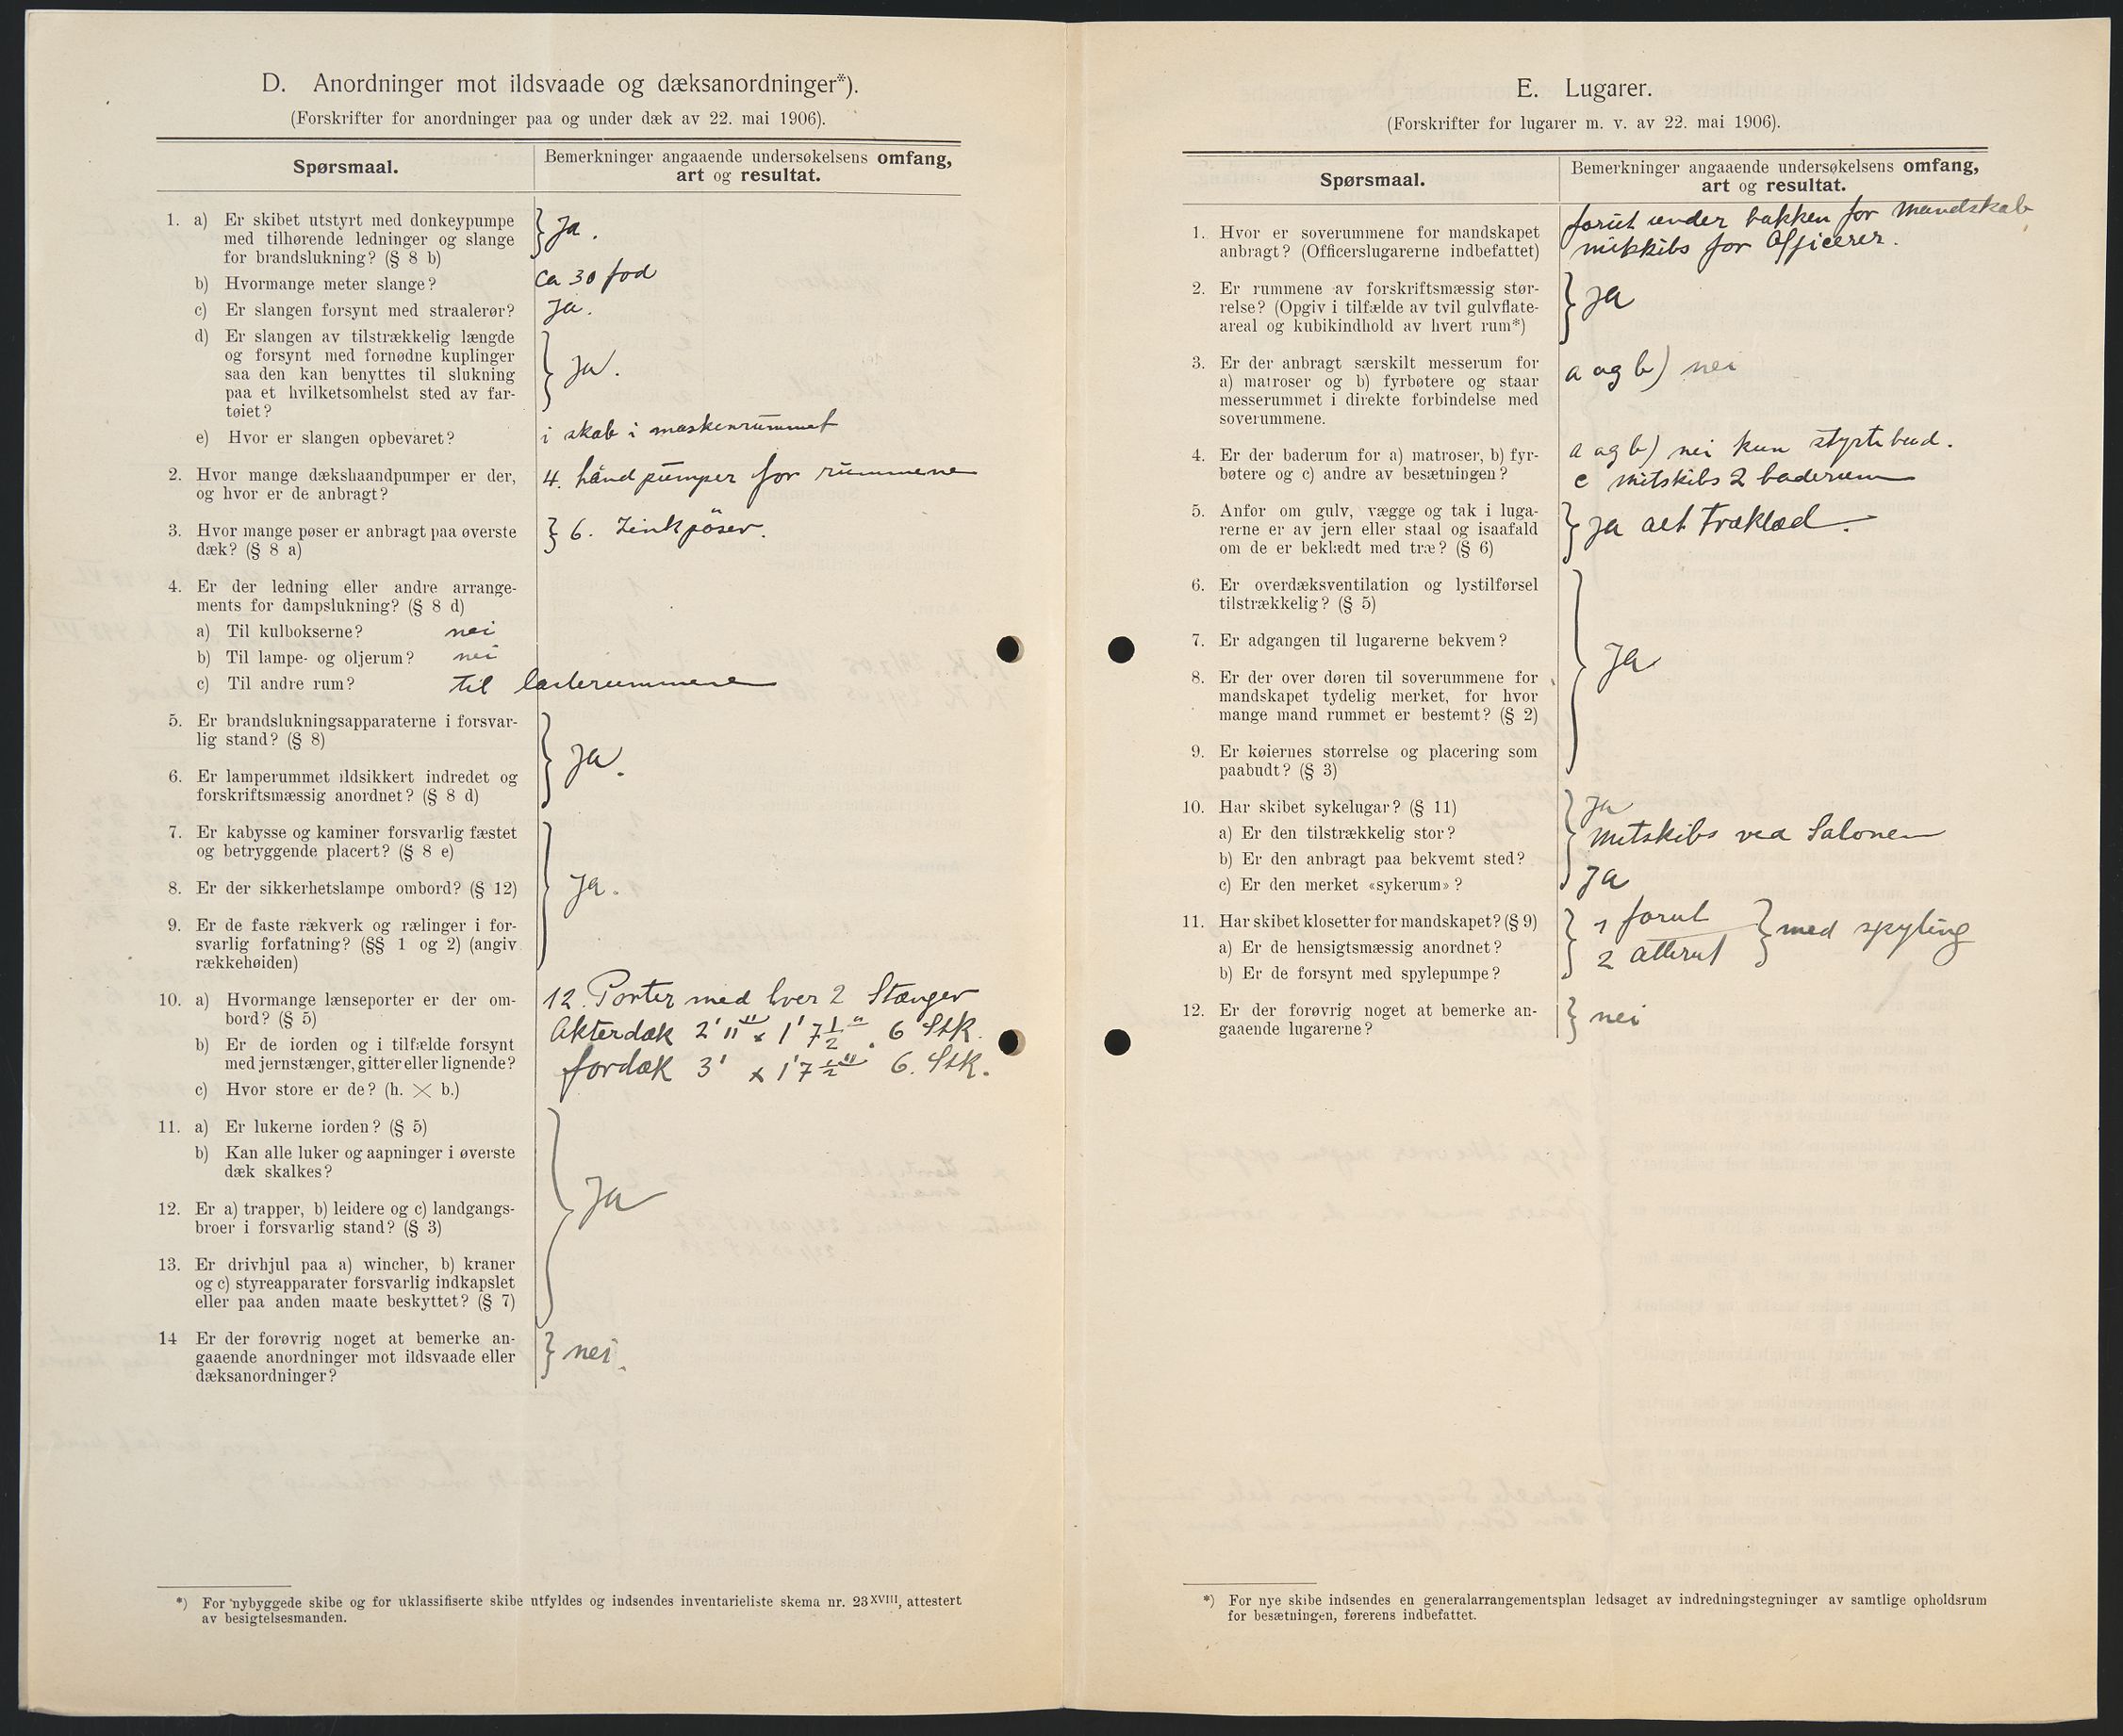 D. Anordninger mot ildsvaade og dæksanordninger*).
(Forskrifter for anordninger paa og under dæk av 22. mai 1906).
Spørsmaal.
Bemerkninger angaaende undersøkelsens omfang,
art og resultat.
1. a) Er skibet utstyrt med donkeypumpe
med tilhørende ledninger og slange
for brandslukning? (§ 8 b)
Ja.
b) Hvormange meter slange?
ca 30 fod
c) Er slangen forsynt med straalerør?
Ja.
d) Er slangen av tilstrækkelig længde
og forsynt med fornødne kuplinger
saa den kan benyttes til slukning
paa et hvilketsomhelst sted av far-
tøiet?
Ja.
e) Hvor er slangen opbevaret?
i skab i maskenrummet
2. Hvor mange dækshaandpumper er der,
og hvor er de anbragt?
4. håndpumper for rummene
3. Hvor mange pøser er anbragt paa øverste
dæk? (§ 8 a)
6. Zinkpöser.
4. Er der ledning eller andre arrange-
ments for dampslukning? (§ 8 d)
a) Til kulbokserne? nei
b) Til lampe- og oljerum? nei
c) Til andre rum? til lasterummene
5. Er brandslukningsapparaterne i forsvar-
lig stand? (§ 8)
Ja.
6. Er lamperummet ildsikkert indredet og
forskriftsmæssig anordnet? (§ 8 d)
7. Er kabysse og kaminer forsvarlig fæstet
og betryggende placert? (§ 8 e)
8. Er der sikkerhetslampe ombord? (§ 12)
Ja.
9. Er de faste rækverk og rælinger i for-
svarlig forfatning? (§§ 1 og 2) (angiv
rækkehøiden)
10. a) Hvormange lænseporter er der om-
bord? (§ 5)
b) Er de iorden og i tilfælde forsynt
med jernstænger, gitter eller lignende?
c) Hvor store er de? (h. × b.)
12. Porter med hver 2 Stænger
Akterdæk 2' 11" x 1' 7 1/2" . 6 Stk.
fordæk 3' x 1' 7 1/2" 6. Stk.
11. a) Er lukerne iorden? (§ 5)
b) Kan alle luker og aapninger i øverste
dæk skalkes?
12. Er a) trapper, b) leidere og c) landgangs-
broer i forsvarlig stand? (§ 3)
Ja
13. Er drivhjul paa a) wincher, b) kraner
og c) styreapparater forsvarlig indkapslet
eller paa anden maate beskyttet? (§ 7)
14 Er der forøvrig noget at bemerke an-
gaaende anordninger mot ildsvaade eller
dæksanordninger?
nei.
*) For nybyggede skibe og for uklassifiserte skibe utfyldes og indsendes inventarieliste skema nr. 23XVIII, attestert
av besigtelsesmanden.
E. Lugarer.
(Forskrifter for lugarer m. v. av 22. mai 1906).
Spørsmaal.
Bemerkninger angaaende undersøkelsens omfang,
art og resultat.
1. Hvor er soverummene for mandskapet
anbragt? (Officerslugarerne indbefattet)
forut under bakken for Mandskab
mitskibs for Officerer.
2. Er rummene av forskriftsmæssig stør-
relse? (Opgiv i tilfælde av tvil gulvflate-
areal og kubikindhold av hvert rum*)
Ja
3. Er der anbragt særskilt messerum for
a) matroser og b) fyrbøtere og staar
messerummet i direkte forbindelse med
soverummene.
a og b) nei
4. Er der baderum for a) matroser, b) fyr-
bøtere og c) andre av besætningen?
a og b) nei kun styrtebad.
c mitskibs 2 baderum
5. Anfor om gulv, vægge og tak i luga-
rerne er av jern eller staal og isaafald
om de er beklædt med træ? (§ 6)
Ja alt træklæd.
6. Er overdæksventilation og lystilførsel
tilstrækkelig? (§ 5)
7. Er adgangen til lugarerne bekvem?
Ja
8. Er der over døren til soverummene for
mandskapet tydelig merket, for hvor
mange mand rummet er bestemt? (§ 2)
9. Er køiernes størrelse og placering som
paabudt? (§ 3)
10. Har skibet sykelugar? (§ 11)
Ja
a) Er den tilstrækkelig stor?
b) Er den anbragt paa bekvemt sted?
Mitskibs ved Salonen
c) Er den merket «sykerum»?
Ja
11. Har skibet klosetter for mandskapet? (§ 9)
a) Er de hensigtsmæssig anordnet?
b) Er de forsynt med spylepumpe?
1 forut
2 atterut
med spyling
12. Er der forøvrig noget at bemerke an-
gaaende lugarerne?
nei
*) For nye skibe indsendes en generalarrangementsplan ledsaget av indredningstegninger av samtlige opholdsrum
for besætningen, førerens indbefattet.